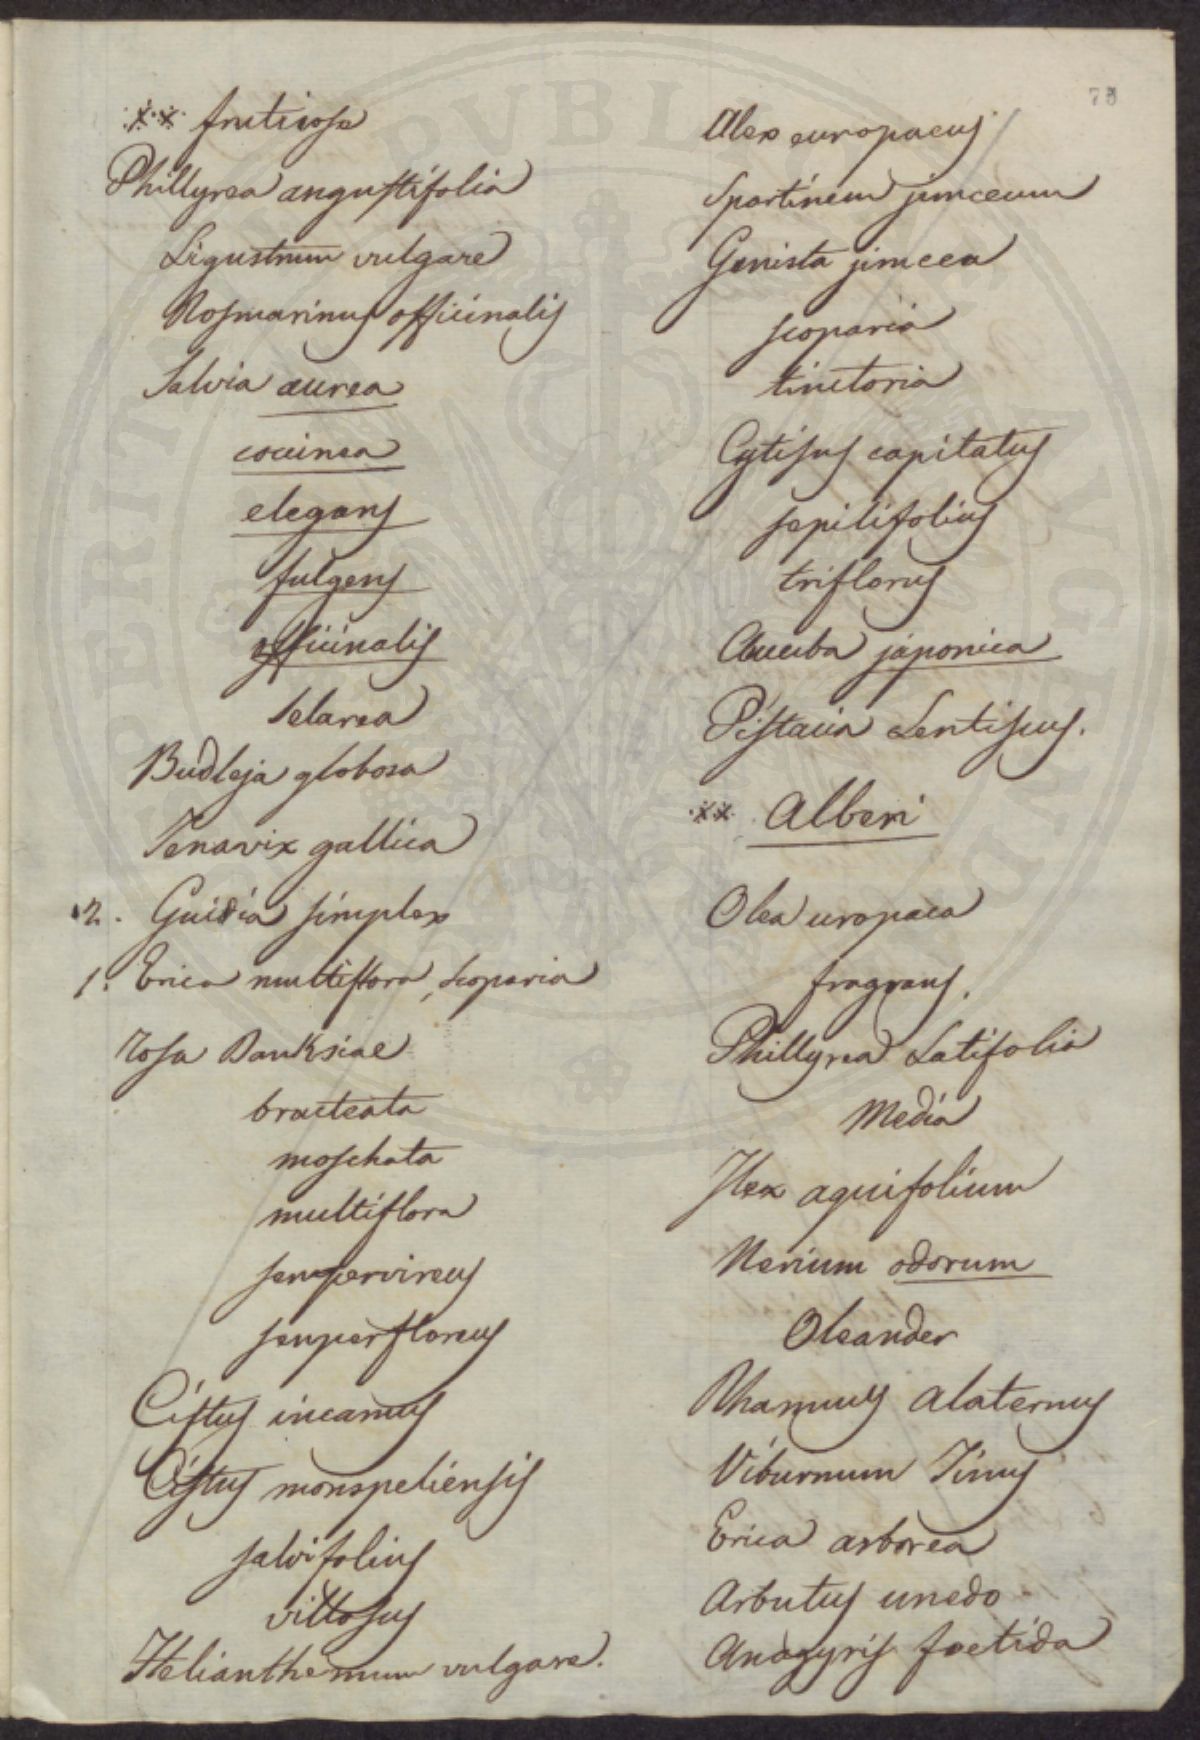 75
** fruticose
Phillyrea angustifolia
Ligustrum vulgare
Rosmarinus officinalis
Salvia aurea
coccinea
elegans
fulgens
officinalis
Sclarea
Budleja globosa
Tamarix gallica
2. Gnidia simplex
1. Erica multiflora, scoparia
rosa Banksiae
bracteata
moschata
multiflora
sempervirens
semperflorens
Cistus incanus
Cistus monspeliensis
salvifolius
villosus
Helianthemum vulgare.
Ulex europaeus
Spartineum junceum
Genista juncea
scoparia
tinctoria
Cytisus capitatus
sepilifolius
triflorus
Aucuba japonica
Pistacia Lentiscus.
** Alberi
Olea europaea
fragrans.
Phillyrea Latifolia
Media
Ilex aquifolium
Nerium odorum
Oleander
Rhamnus alaternus
Viburnum Tinus
Erica arborea
Arbutus unedo
Anagyris foetida